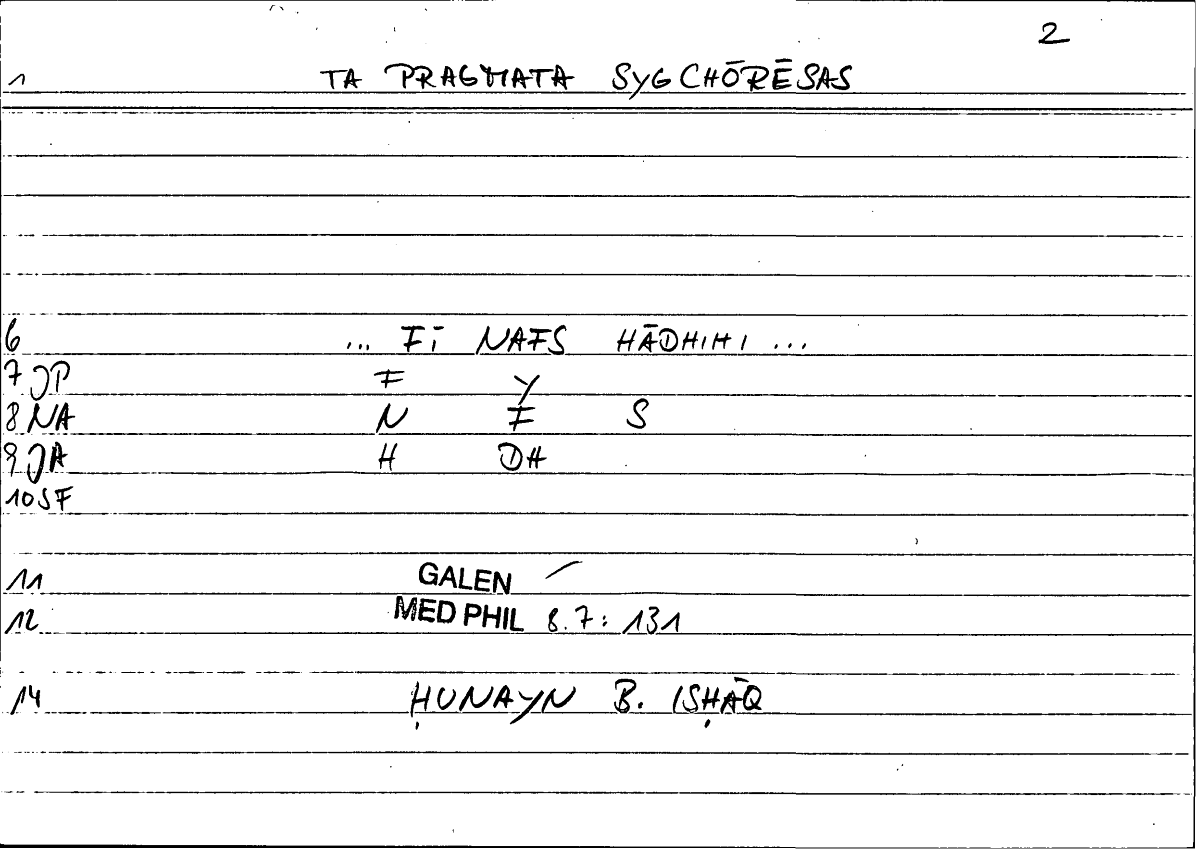 2
1 TA PRAGMATA SYGCHŌRĒSAS
6 ... FĪ NAFS HĀDHIHI ...
7 JP F Y
8 NA N F S
9 JA H DH
10 SF
11 GALEN
12 MED PHIL 8.7: 131
14 ḤUNAYN B. ISḤĀQ